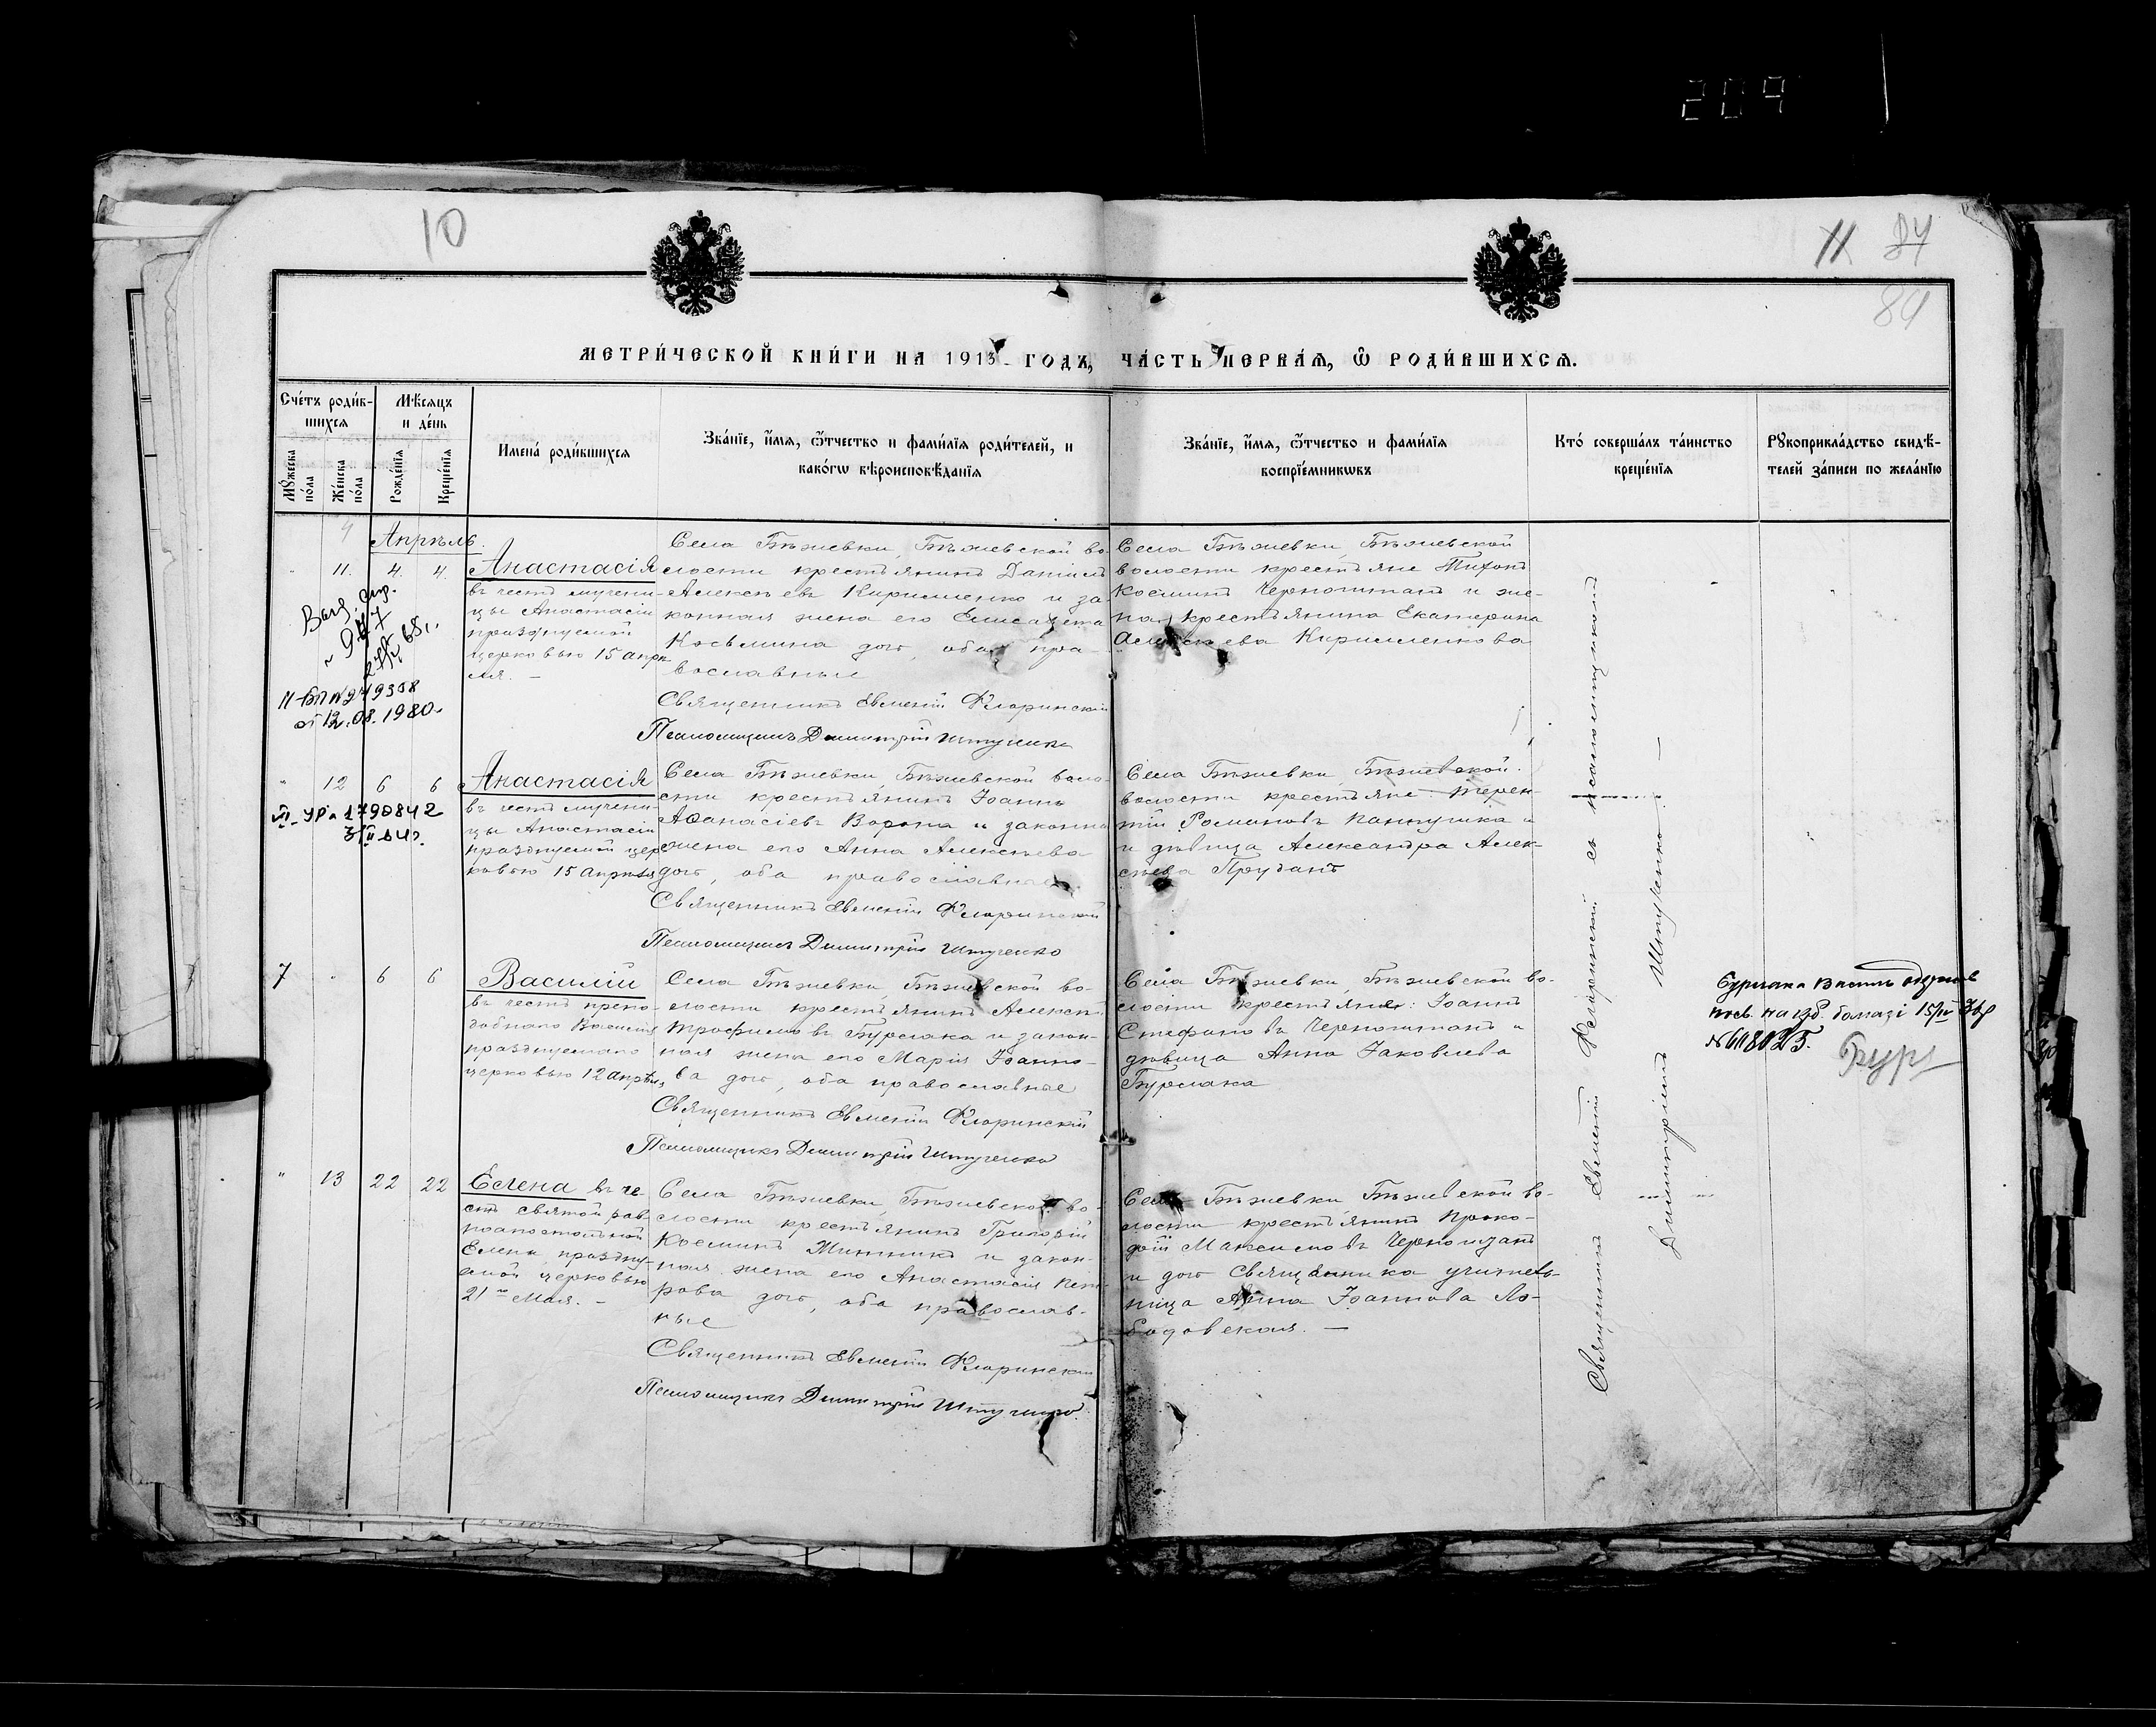 209
10
11 84
84
МЕТРИ́ЧЕСКОЙ КНИ́ГИ НА 1913 ГОДЪ, ЧА́СТЬ ПЕРВА́Я, Ѡ РОДИ́ВШИХСЯ.
Сче́тъ роди́в-
шихся
Мѣ́сяцъ
и де́нь
Му́жеска по́ла
Же́нска по́ла
Рожде́нїя
Креще́нїя
Имена́ роди́вшихся
Зва́нїе, и҆́мя, ѻ҆́тчество и фами́лїя роди́телей, и
како́гѡ вѣроисповѣ́данїя
Зва́нїе, и҆́мя, ѻ҆́тчество и фами́лїя
воспрїе́мникѡвъ
Кто́ соверша́лъ та́инство
креще́нїя
Рꙋкоприкла́дство свидѣ́-
телей за́писи по жела́нїю
Апрѣль.
" 11. 4. 4.
Анастасія
въ честь мучени-
цы Анастасіи
празднуемой
церковью 15 апрѣ-
ля. —
Села Бѣжевки, Бѣжевской во-
лости крестьянинъ Даніилъ
Алексѣевъ Кириленко и за-
конная жена его Елисавета
Косьмина дочь, оба пра-
вославные
Священникъ Евменій Флоринскій
Псаломщикъ Димитрій Штученко
Села Бѣжевки, Бѣжевской
волости крестьяне Тихонъ
Космин Черноштан и же-
на крестьянина Екатерина
Алексѣева Кирилленкова
от 12.08.1980.
" 12 6 6
Анастасія
въ честь мучени-
цы Анастасіи
празднуемой цер-
ковью 15 апрѣля
Села Бѣжевки, Бѣжевской воло-
сти крестьянинъ Іоаннъ
Афанасіевъ Ворона и законна
жена его Анна Алексѣева
дочь, оба православные
Священникъ Евменій Флоринскій
Псаломщикъ Димитрій Штученко
Села Бѣжевки, Бѣжевской
волости крестьяне: Терен-
тій Романовъ Пантушка и
и дѣвица Александра Алек-
сѣева Прудант
1790842
7 " 6 6
Василій
въ честь препо-
добнаго Василія
празднуемаго
церковью 12 апрѣля
Села Бѣжевки, Бѣжевской во-
лости крестьянинъ Алексѣй
Трофимовъ Бурлака и закон-
ная жена его Марія Іоанно-
ва дочь, оба православные
Священникъ Евменій Флоринскій
Псаломщикъ Димитрій Штученко
Села Бѣжевки, Бѣжевской во-
лости крестьяне: Іоаннъ
Стефановъ Черноштанъ и
дѣвица Анна Іаковлева
Бурлака
№ 618025.
" 13 22 22
Елена въ че-
сть святой рав-
ноапостольной
Елены, праздну-
емой церковью
21го Мая. —
Села Бѣжевки, Бѣжевской во-
лости крестьянинъ Григорій
Косминъ Жинникъ и закон-
ная жена его Анастасія Пет-
рова дочь, оба православ-
ные
Священникъ Евменій Флоринскій
Псаломщикъ Димитрій Штученко
Села Бѣжевки, Бѣжевской во-
лости крестьянинъ Проко-
фій Максимовъ Черноштанъ
и дочь священника учитель-
ница Анна Іоаннова Ло-
бодовская. —
Священникъ Евменій Флоринскій съ псаломщикомъ
Димитріемъ Штученко. —